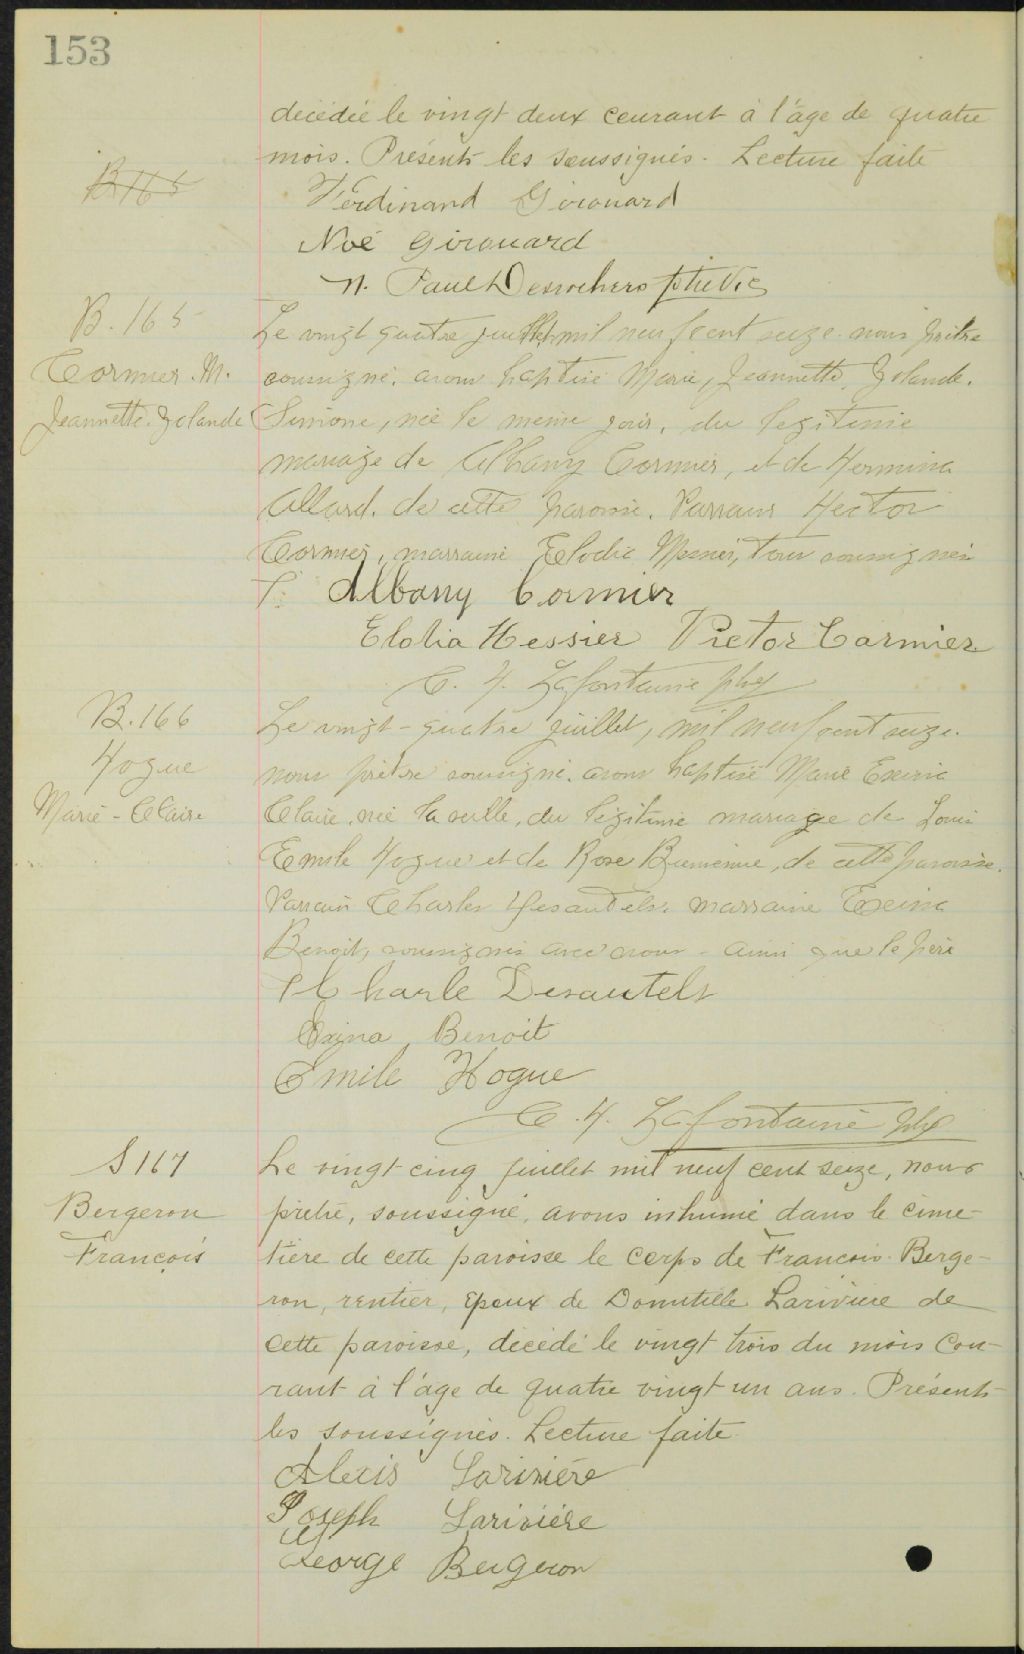 153
décédée le vingt deux courant à l'âge de quatre
mois. Présents les soussignés. Lecture faite
B165
Ferdinand Girouard
Noé Girouard
N. Paul Desrochers ptre Vic
B. 165
Cormier. M.
Jeannette. Yolande
Le vingt quatre juillet mil neuf cent seize. nous prêtre
soussigné. avons baptisé Marie, Jeannette, Yolande.
Simone, née le même jour, du légitime
mariage de Albany Cormier, et de Hermina
Allard. de cette paroisse. Parrain Hector
Cormier, marraine Elodie Messier, tous soussignés
Albany Cormier
Elodia Messier Victor Cormier
C. H. Lafontaine ptre
B. 166
Hogue
Marie-Claire
Le vingt-quatre juillet, mil neuf cent seize.
nous prêtre soussigné. avons baptisé Marie Exérie
Claire. née la veille, du légitime mariage de Louis
Emile Hogue et de Rose Bienvenue, de cette paroisse.
Parrain Charles Desautels. marraine Exina
Benoit, soussignés avec nous. ainsi que le père
Charle Desautels
Exina Benoit
Emile Hogue
C. H. Lafontaine ptre
S 167
Bergeron
François
Le vingt-cinq juillet mil neuf cent seize, nous
prêtre, soussigné, avons inhumé dans le cime-
tière de cette paroisse le corps de François Berge-
ron, rentier, époux de Domitille Larivière de
cette paroisse, décédé le vingt trois du mois cou-
rant à l'âge de quatre vingt un ans. Présents
les soussignés. Lecture faite
Alexis Larivière
Joseph Larivière
George Bergeron